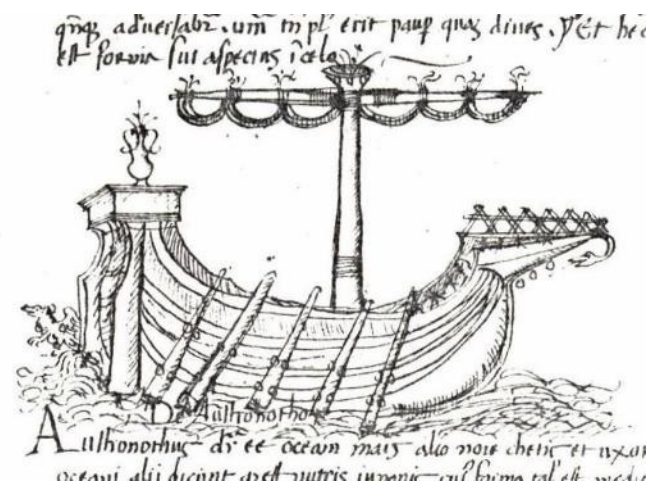 qnqz adversabr. um tn pl' erit paup quaz dives. Et he
est forma sui aspectus i celo
De Austronotho
Austronothus dr ee oceani maris alio noie chetis et uxor
oceani alii dicunt q est nutris iunonis cui' forma tal' est